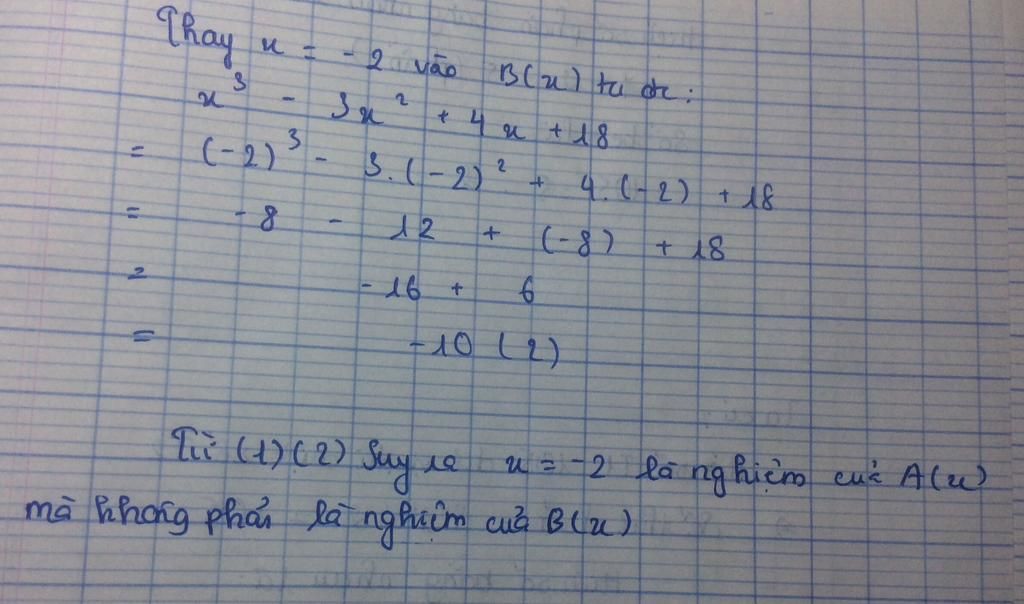 Thay x = -2 vào B(x) ta đc:
x³ - 3x² + 4x + 18
= (-2)³ - 3.(-2)² + 4.(-2) + 18
= -8 - 12 + (-8) + 18
= -16 + 6
= -10 (2)
Từ (1)(2) Suy ra x = -2 là nghiệm của A(x)
mà không phải là nghiệm của B(x)